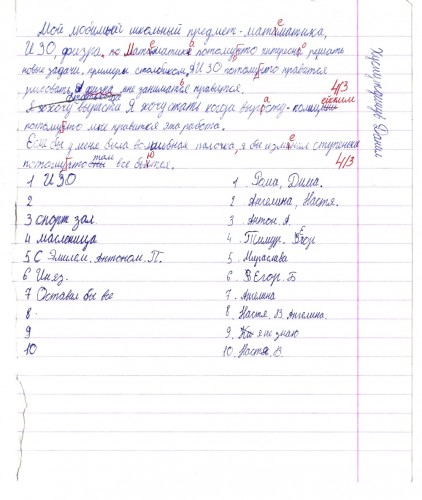 Мой любимый школьный предмет - математика,
ИЗО, физра. по Математика потомуто интересно решать
новые задачи, примеры столбиком, я ИЗО потомуто нравится
рисовать, а физкультура физра мне заниматся нравится. 4/3
Я хочу вырости Я хочу стать когда выросту - полицейским
потомуто мне нравится эта работа.
Если бы у меня была волшебная палочка, я бы изменил ступеньки
потомуто там все бьются. 4/3
1 ИЗО
2
3 спорт зал
4 масленица
5 С Эмилем. Антоном. П.
6 Ин.яз.
7 Оставил бы все
8
9
10
1. Рома, Дима.
2 Ангелина, Настя.
3 Антон. А.
4 Тимур. Егор
5 Мирослава
6 Егор. Б
7. Ангелина
8. Настя. В Ангелина.
9. Кто я не знаю
10. Настя. В.
Данил